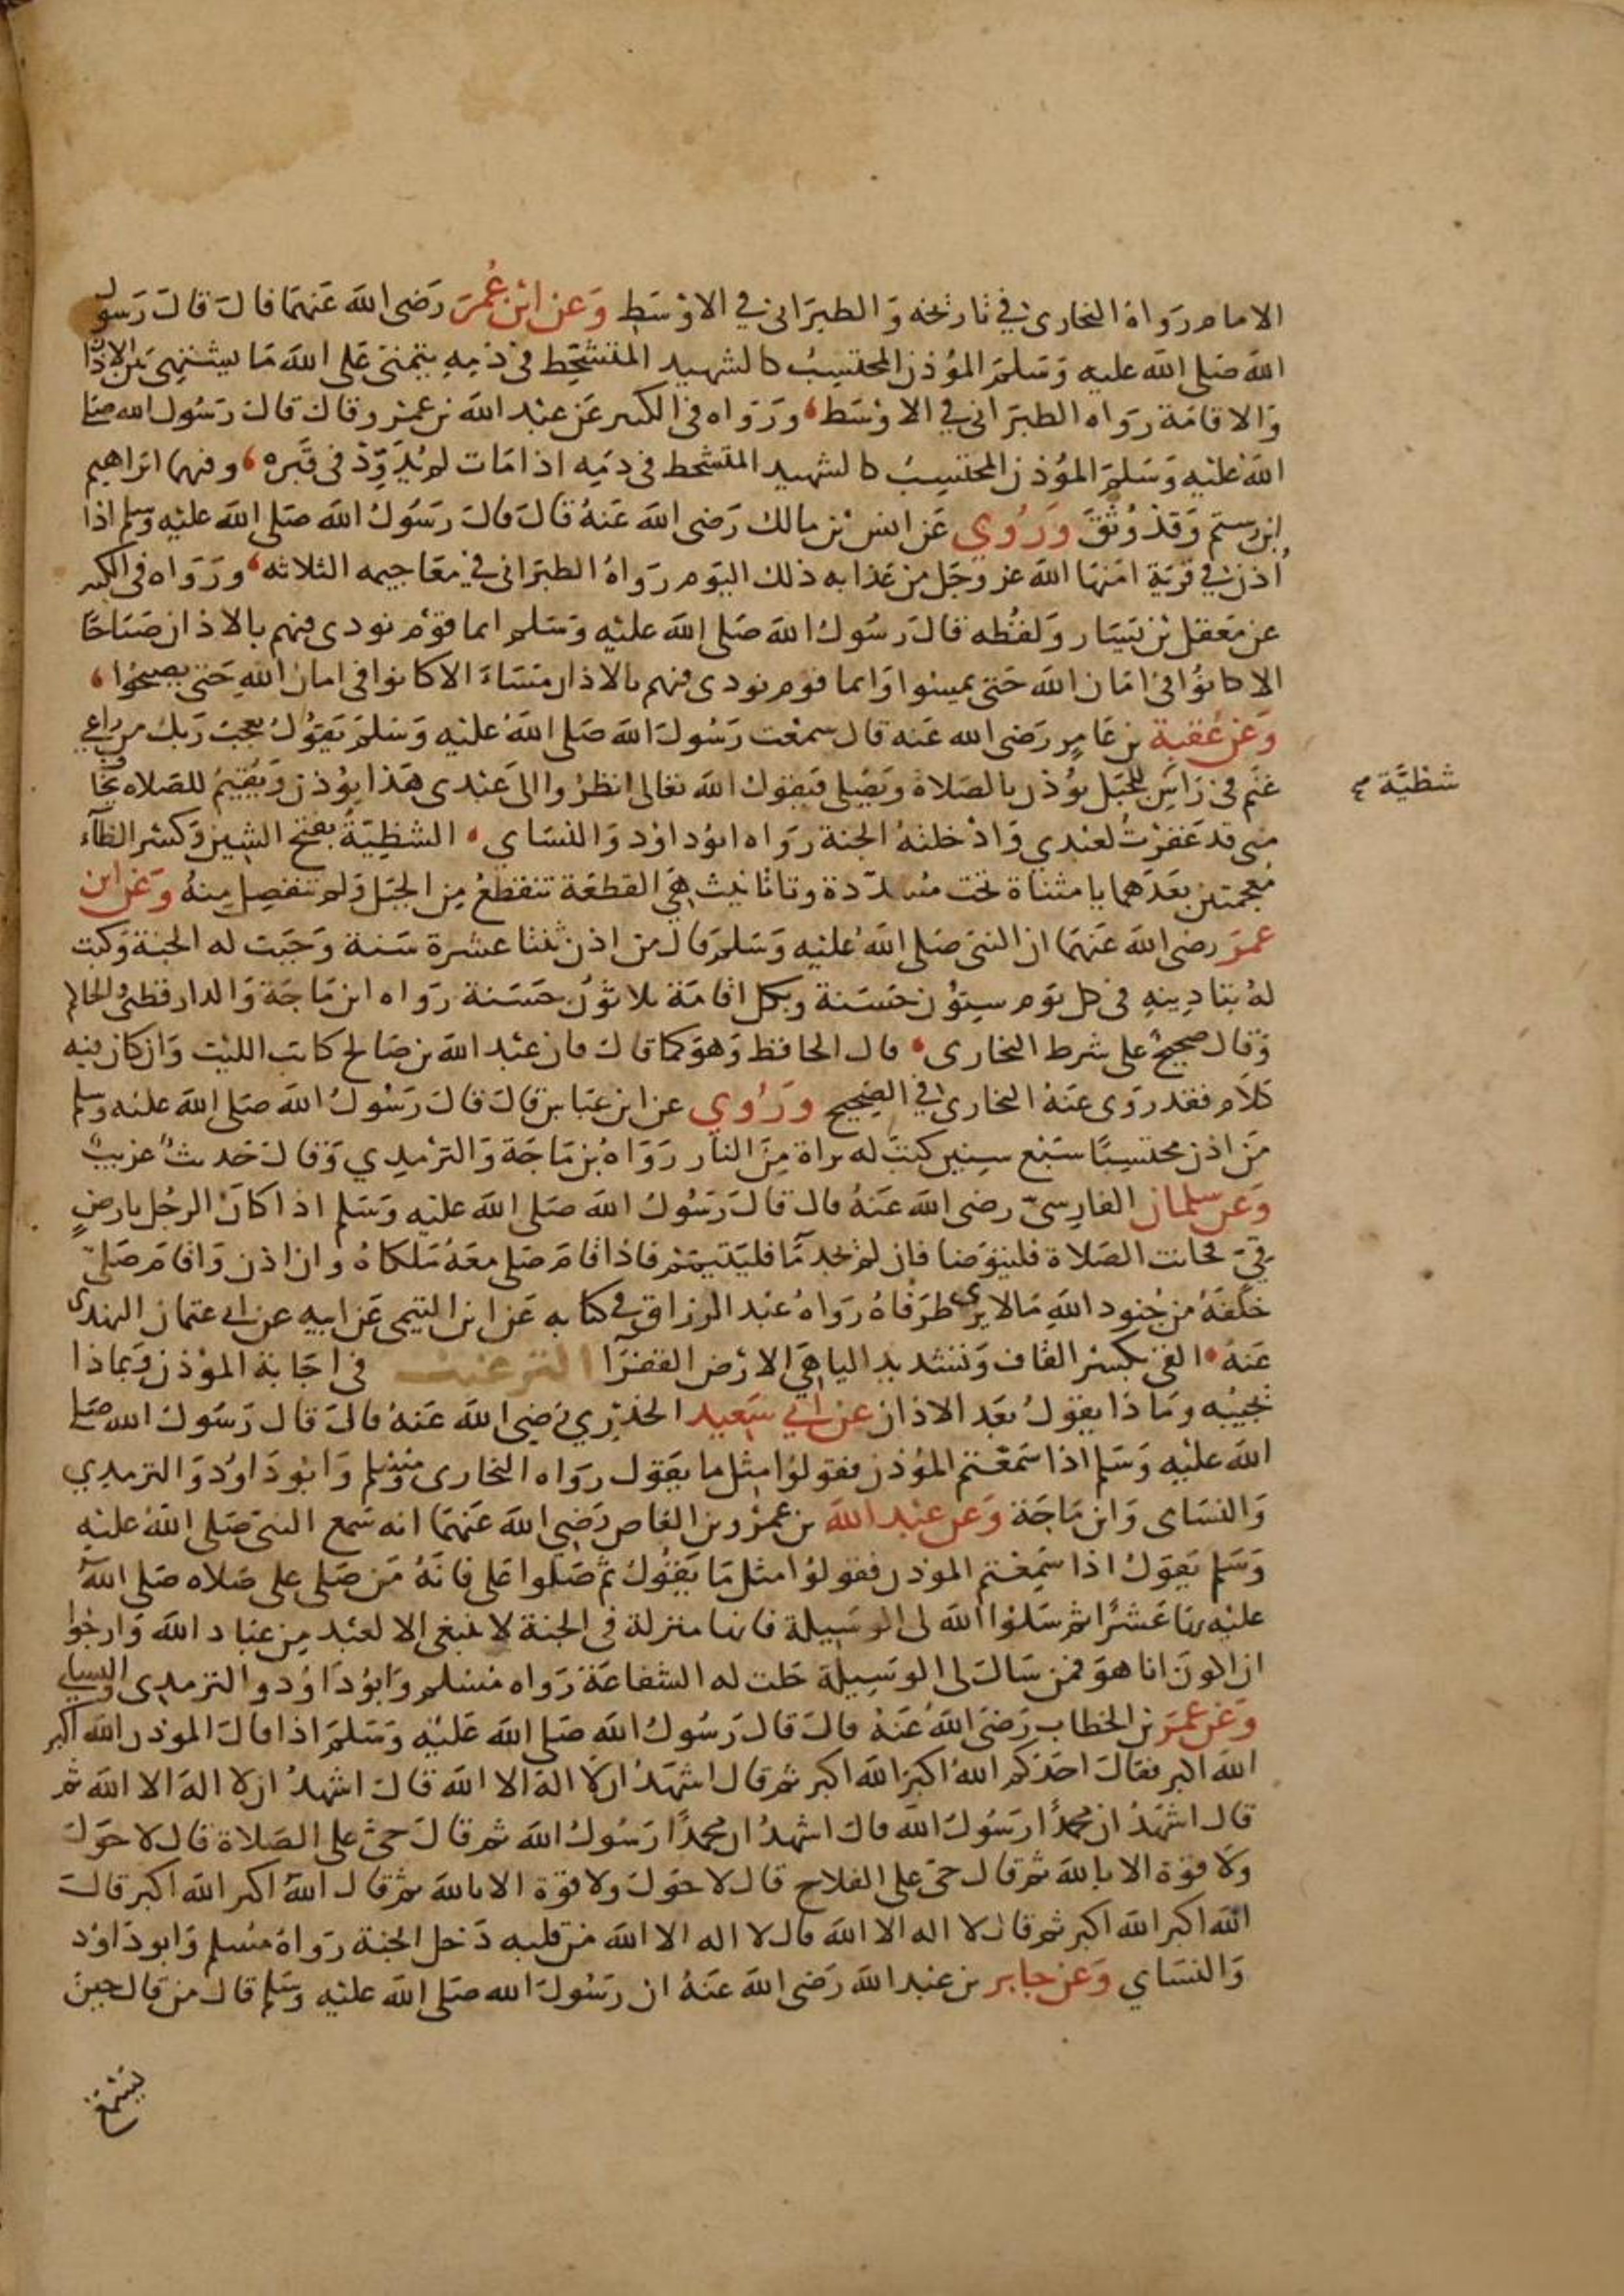 الامام رواه البخارى في تاريخه والطبرانى في الاوسط وعن ابن عمر رضى الله عنهما قال قال رسول
الله صلى الله عليه وسلم المؤذن المحتسب كالشهيد المتشحط فى دمه يتمنى على الله ما يشتهى بين الاذان
والاقامة رواه الطبرانى في الاوسط ورواه فى الكبير عن عبد الله بن عمرو قال قال رسول الله صلى
الله عليه وسلم المؤذن المحتسب كالشهيد المتشحط فى دمه اذا مات لم يدود فى قبره وفيهما ابراهيم
ابن رستم وقد وثق وروي عن انس بن مالك رضى الله عنه قال قال رسول الله صلى الله عليه وسلم اذا
اذن في قرية امنها الله عز وجل من عذابه ذلك اليوم رواه الطبرانى في معاجيمه الثلاثه ورواه فى الكبير
عن معقل بن يسار ولفظه قال رسول الله صلى الله عليه وسلم ايما قوم نودى فيهم بالاذان صباحا
الا كانوا فى امان الله حتى يمسوا وايما قوم نودى فيهم بالاذان مساء الا كانوا فى امان الله حتى يصبحوا
وعن عقبة بن عامر رضى الله عنه قال سمعت رسول الله صلى الله عليه وسلم يقول يعجب ربك من راعي
غنم فى راس للجبل يؤذن بالصلاة ويصلى فيقول الله تعالى انظروا الى عبدى هذا يؤذن ويقيم للصلاه يخا
شظية
منى قد غفرت لعبدي وادخلته الجنة رواه ابو داود والنساي الشظية بفتح الشين وكسر الظاء
معجمتين بعدهما يا مثناة تحت مشددة وتا تانيث هي القطعة تنقطع من الجبل ولم تنفصل منه وعن ابن
عمر رضى الله عنهما ان النبى صلى الله عليه وسلم قال من اذن ثنتا عشرة سنة وجبت له الجنة وكتب
له بتاديـنه فى كل يوم ستون حسنة وبكل اقامة ثلاثون حسنة رواه ابن ماجة والدارقطنى والحاكم
وقال صحيح على شرط البخارى قال الحافظ وهو كما قال فان عبد الله بن صالح كاتب الليث وان كان فيه
كلام فقد روى عنه البخارى في الصحيح وروي عن ابن عباس قال قال رسول الله صلى الله عليه وسلم
من اذن محتسبا سبع سنين كتب له براة من النار رواه بن ماجة والترمدي وقال حديث غريب
وعن سلمان الفارسى رضى الله عنه قال قال رسول الله صلى الله عليه وسلم اذا كان الرجل بارض
قي فحانت الصلاة فليتوضا فان لم يجد ما فليتيمم فاذا اقام صلى معه ملكاه وان اذن واقام صلى
خلفه من جنود الله مالا يرى طرفاه رواه عبد الرزاق في كتابه عن ابن التيمى عن ابيه عن ابى عثمان الهندى
عنه القى بكسر القاف وتشديد اليا هي الارض القفرا الترغيب فى اجابة المؤذن وبماذا
يجيبه وماذا يقول بعد الاذان عن ابي سعيد الخدري رضي الله عنه قال قال رسول الله صلى
الله عليه وسلم اذا سمعتم المؤذن فقولوا مثل ما يقول رواه البخارى ومسلم وابو داود والترمدي
والنساى وابن ماجة وعن عبد الله بن عمرو بن العاص رضي الله عنهما انه سمع النبى صلى الله عليه
وسلم يقول اذا سمعتم الموذن فقولوا مثل ما يقول ثم صلوا على فانه من صلى على صلاه صلى الله
عليه بها عشرا ثم سلوا الله لى الوسيلة فانها منزلة فى الجنة لا ينبغى الا لعبد من عباد الله وارجوا
ان اكون انا هو فمن سال لى الوسيلة حلت له الشفاعة رواه مسلم وابو داود والترمدى والنساي
وعن عمر بن الخطاب رضى الله عنه قال قال رسول الله صلى الله عليه وسلم اذا قال الموذن الله اكبر
الله اكبر فقال احدكم الله اكبر الله اكبر ثم قال اشهد ان لا اله الا الله قال اشهد ان لا اله الا الله ثم
قال اشهد ان محمدا رسول الله قال اشهد ان محمدا رسول الله ثم قال حى على الصلاة قال لا حول
ولا قوة الا بالله ثم قال حى على الفلاح قال لا حول ولا قوة الا بالله ثم قال الله اكبر الله اكبر قال
الله اكبر الله اكبر ثم قال لا اله الا الله قال لا اله الا الله من قلبه دخل الجنة رواه مسلم وابو داود
والنساي وعن جابر بن عبد الله رضى الله عنه ان رسول الله صلى الله عليه وسلم قال من قال حين
يسمع